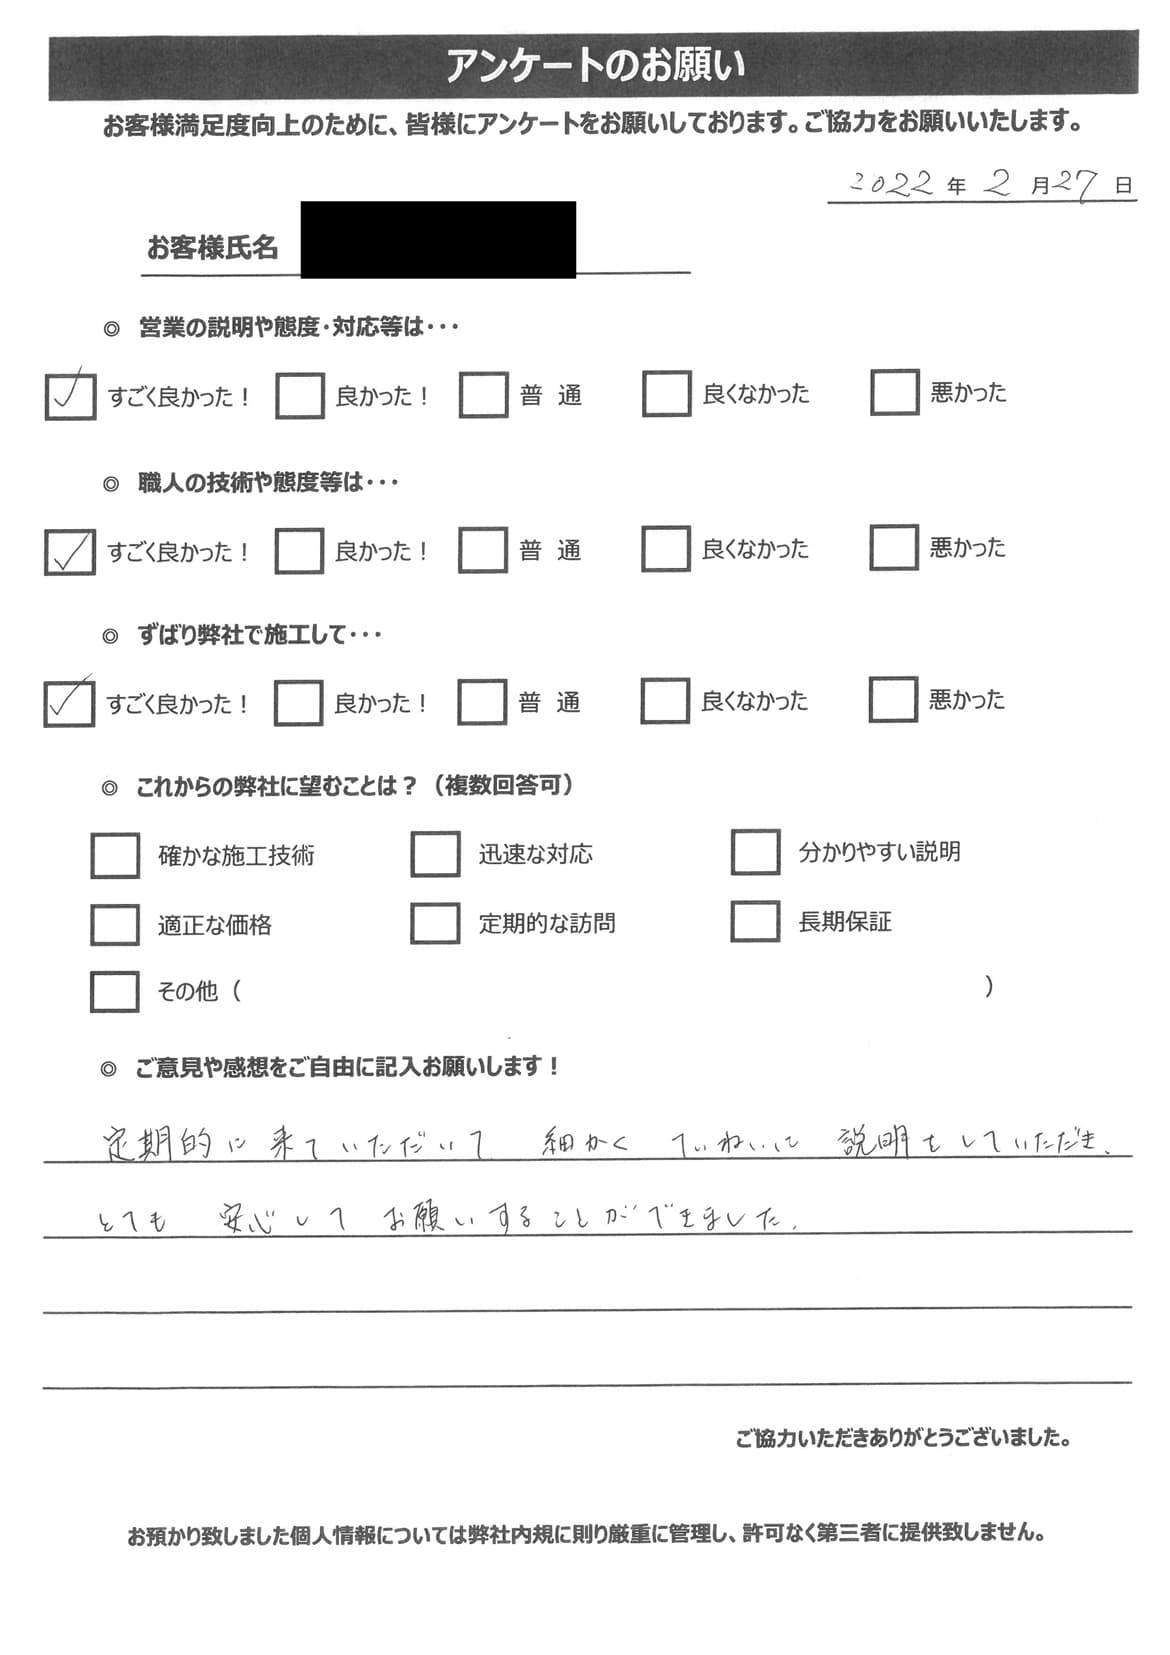 アンケートのお願い
お客様満足度向上のために、皆様にアンケートをお願いしております。ご協力をお願いいたします。
2022年2月27日
お客様氏名
◎ 営業の説明や態度・対応等は・・・
すごく良かった！ 良かった！ 普 通 良くなかった 悪かった
◎ 職人の技術や態度等は・・・
すごく良かった！ 良かった！ 普 通 良くなかった 悪かった
◎ ずばり弊社で施工して・・・
すごく良かった！ 良かった！ 普 通 良くなかった 悪かった
◎ これからの弊社に望むことは？（複数回答可）
確かな施工技術 迅速な対応 分かりやすい説明
適正な価格 定期的な訪問 長期保証
その他（ ）
◎ ご意見や感想をご自由に記入お願いします！
定期的に来ていただいて 細かく ていねいに 説明をしていただき、
とても 安心して お願いすることができました。
ご協力いただきありがとうございました。
お預かり致しました個人情報については弊社内規に則り厳重に管理し、許可なく第三者に提供致しません。